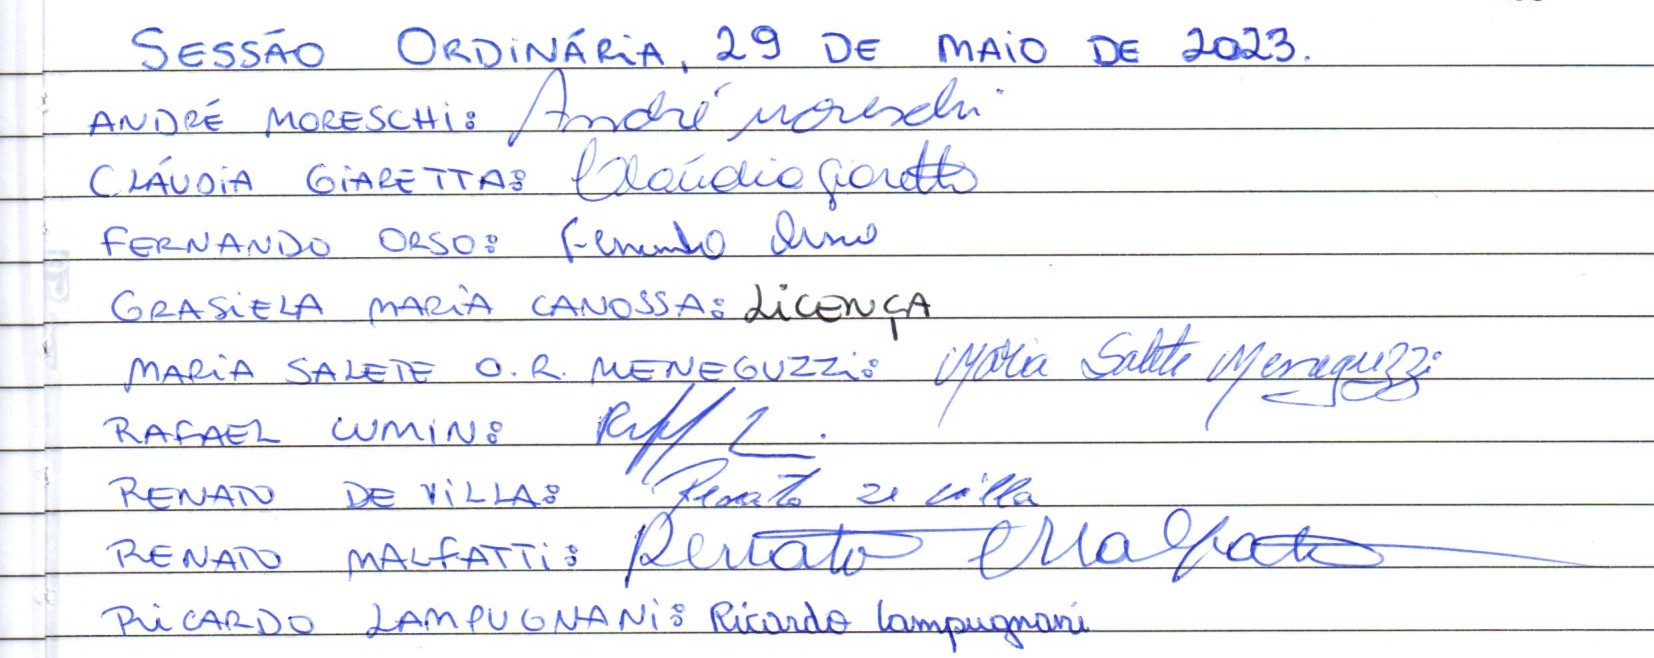 SESSÃO ORDINÁRIA, 29 DE MAIO DE 2023.
ANDRÉ MORESCHI: André Moreschi
CLÁUDIA GIARETTA: Claúdia Giaretta
FERNANDO ORSO: Fernando Orso
GRASIELA MARIA CANOSSA: LICENÇA
MARIA SALETE O. R. MENEGUZZI: Maria Salete Meneguzzi
RAFAEL CUMIN:
RENATO DE VILLA: Renato de villa
RENATO MALFATTI: Renato Malfatti
RICARDO LAMPUGNANI: Ricardo Lampugnani